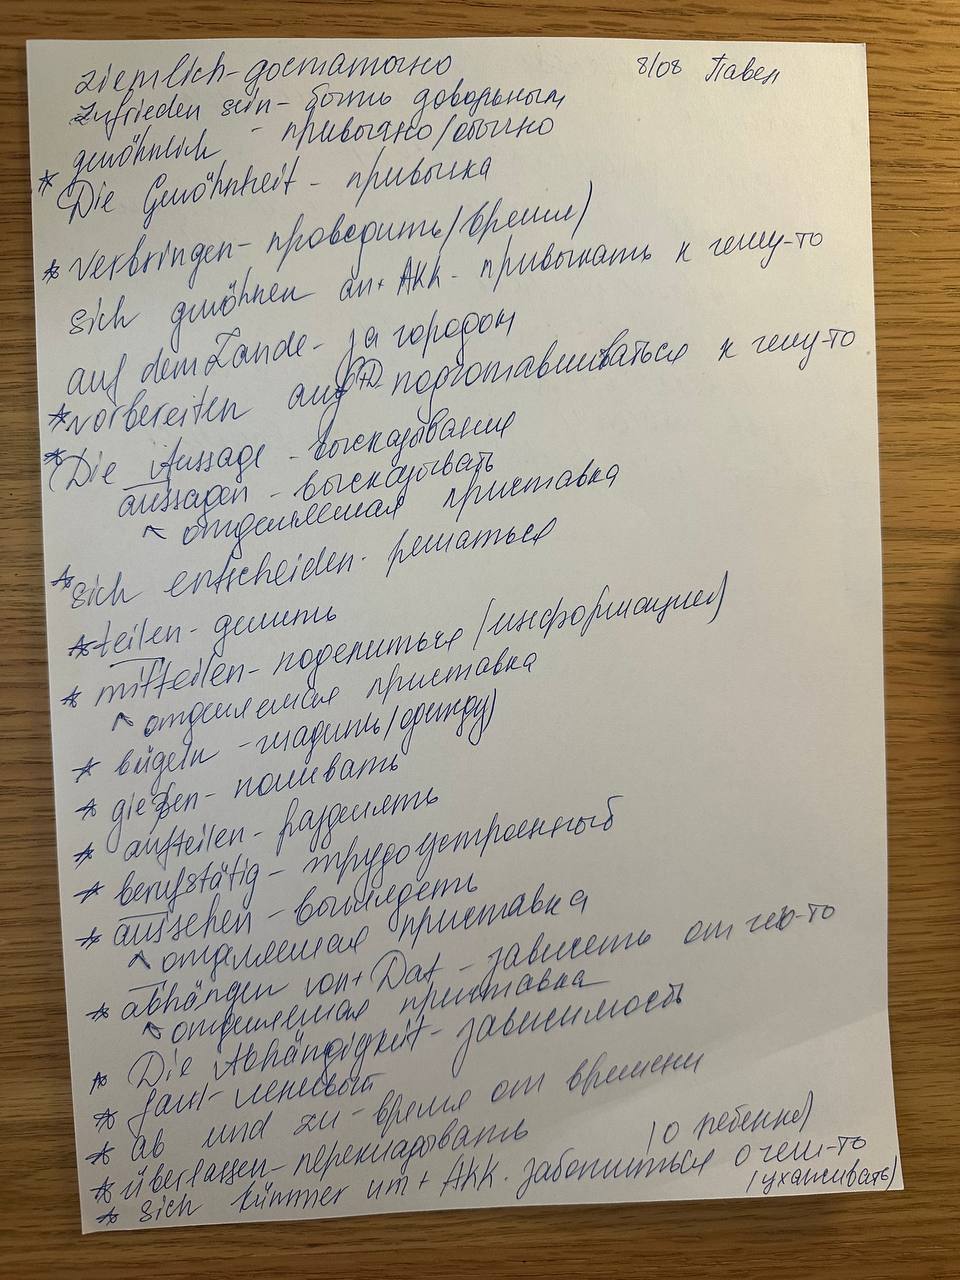 ziemlich - достаточно
8/08 Павел
Zufrieden sein - быть довольным
gewöhnlich - привычно/обычно
* Die Gewöhnheit - привычка
* verbringen - проводить (время)
sich gewöhnen an + Akk - привыкать к чему-то
auf dem Lande - за городом
* vorbereiten auf - подготавливаться к чему-то
* Die Aussage - высказывание
aussagen - высказывать
↖ отделяемая приставка
* sich entscheiden - решаться
* teilen - делить
* mitteilen - поделиться (информацией)
↖ отделяемая приставка
* bügeln - гладить (одежду)
* gießen - поливать
* aufteilen - разделять
* berufstätig - трудоустроенный
* aussehen - выглядеть
↖ отделяемая приставка
* abhängen von + Dat - зависеть от чего-то
↖ отделяемая приставка
* Die Abhängigkeit - зависимость
* faul - ленивый
* ab und zu - время от времени
* überlassen - перекладывать
(о ребенке)
* sich kümmer um + Akk. заботиться о чем-то
(ухаживать)